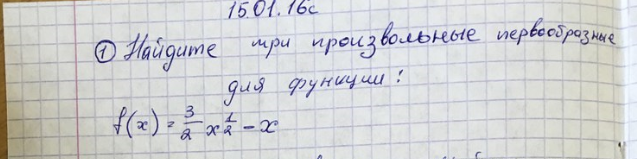 15.01.16г
① Найдите три произвольные первообразные
для функции:
f(x) = 3/2 x^1/2 - x